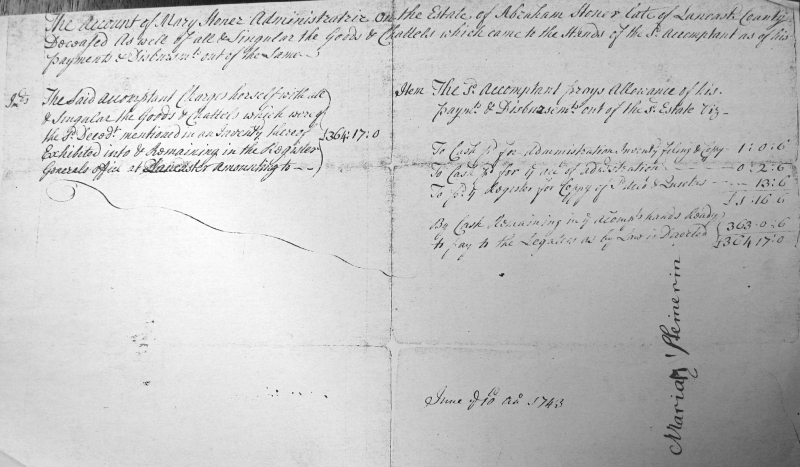 The Account of Mary Stoner Administratrix on the Estate of Abraham Stoner late of Lancast.r County
Deceased As well of all & Singular the Goods & Chattels which came to the Hands of the S.d Accomptant as of his
payments & Disbursm.ts out of the Same
The Said Accomptant Charges herself with all
& Singular the Goods & Chattels which were of
the S.d Deced.t mentioned in an Inventy thereof
Exhibited into & Remaining in the Register
Generals office at Lancaster amounting to
£364:17:0
Item The S.d Accomptant prays Allowance of his
paym.ts & Disbursem.ts out of the S.d Estate Viz
To Cash p.d for Administration Inventy filing & Copy 1:0:6
To Cash p.d for y.e acc.t of administration 0:2:6
To p.d y.e Register for Coppy of & 13:6
£1:16:6
By Cash Remaining in y.e Accompts hands Ready
to pay to the Legatees as by Law is Directed
363:0:6
£364:17:0
June y.e 10 Ao. 1743
Maria Steinerin